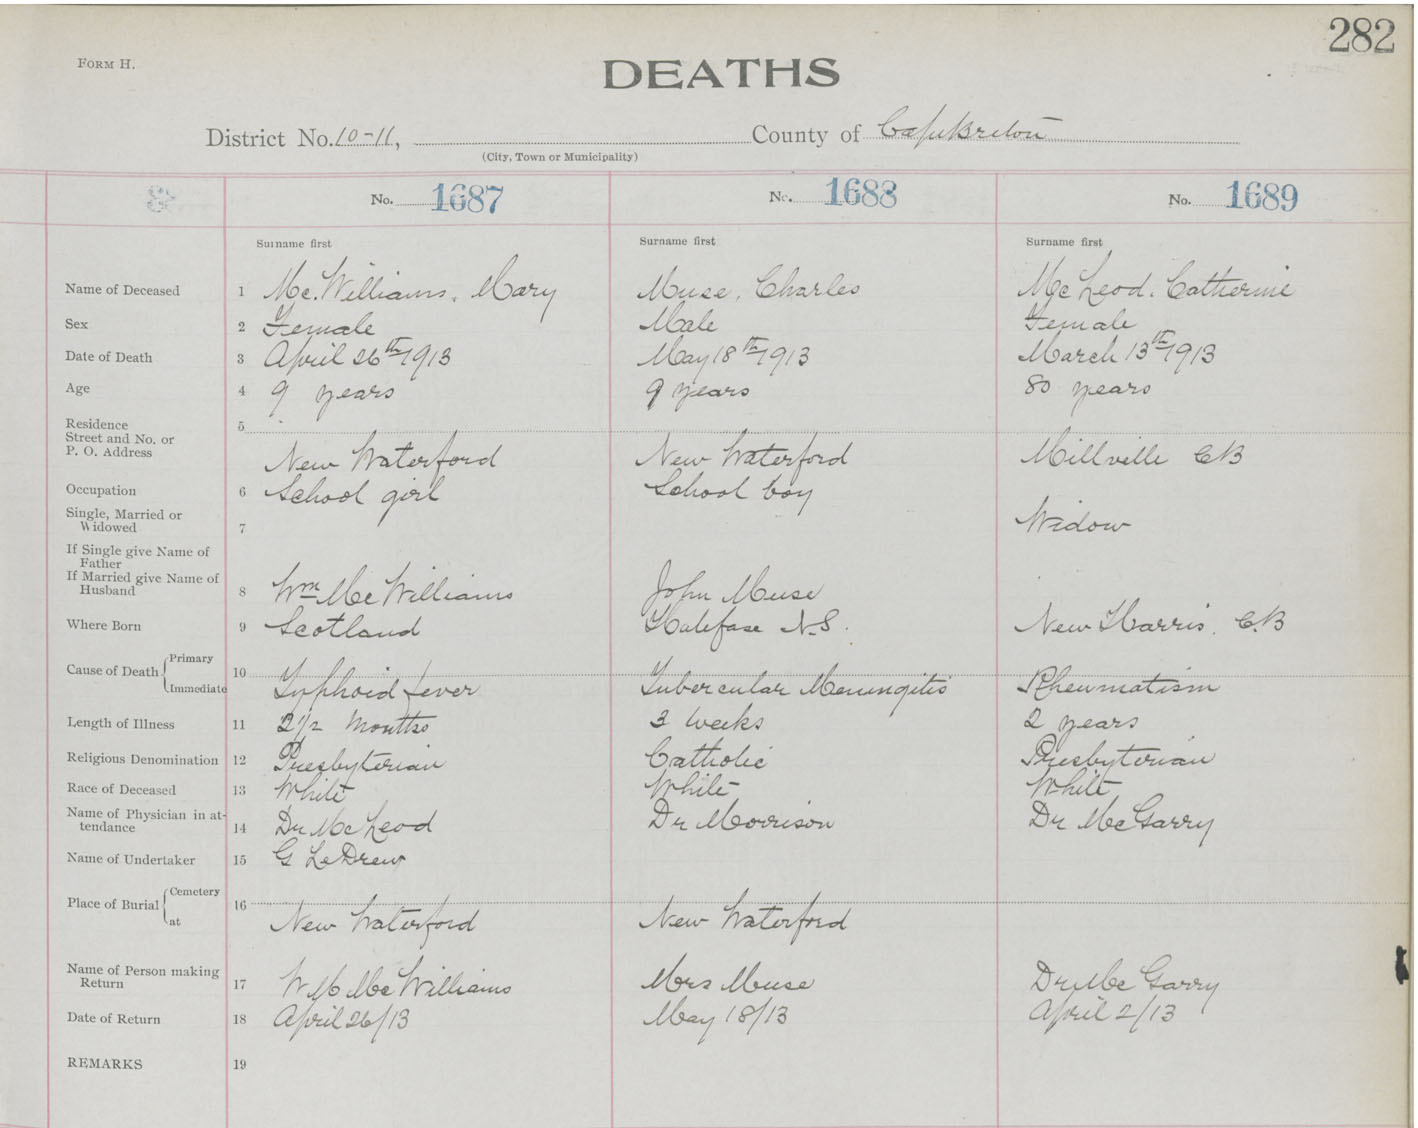 282
FORM H.
DEATHS
District No. 10-11, County of Cape Breton
(City, Town or Municipality)
No. 1687 No. 1688 No. 1689
Surname first Surname first Surname first
Name of Deceased 1 Mc.Williams, Mary Muse, Charles McLeod, Catherine
Sex 2 Female Male Female
Date of Death 3 April 26th 1913 May 18th 1913 March 13th 1913
Age 4 9 years 9 years 80 years
Residence 5
Street and No. or
P. O. Address New Waterford New Waterford Millville CB
Occupation 6 School girl School boy
Single, Married or
Widowed 7 Widow
If Single give Name of
Father
If Married give Name of
Husband 8 Wm McWilliams John Muse
Where Born 9 Scotland Halifax N.S. New Harris, C.B
Cause of Death Primary 10
Immediate Typhoid fever Tubercular Meningitis Rheumatism
Length of Illness 11 2 1/2 Months 3 weeks 2 years
Religious Denomination 12 Presbyterian Catholic Presbyterian
Race of Deceased 13 White White White
Name of Physician in at-
tendance 14 Dr McLeod Dr Morrison Dr McGarry
Name of Undertaker 15 G LeDrew
Place of Burial Cemetery 16
at New Waterford New Waterford
Name of Person making
Return 17 W M McWilliams Mrs Muse Dr McGarry
Date of Return 18 April 26/13 May 18/13 April 2/13
REMARKS 19